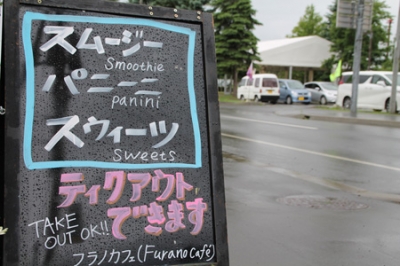 スムージー
Smoothie
パニーニ
panini
スウィーツ
sweets
ティクアウト
できます
TAKE
OUT OK!!
フラノカフェ(Furano Cafe)